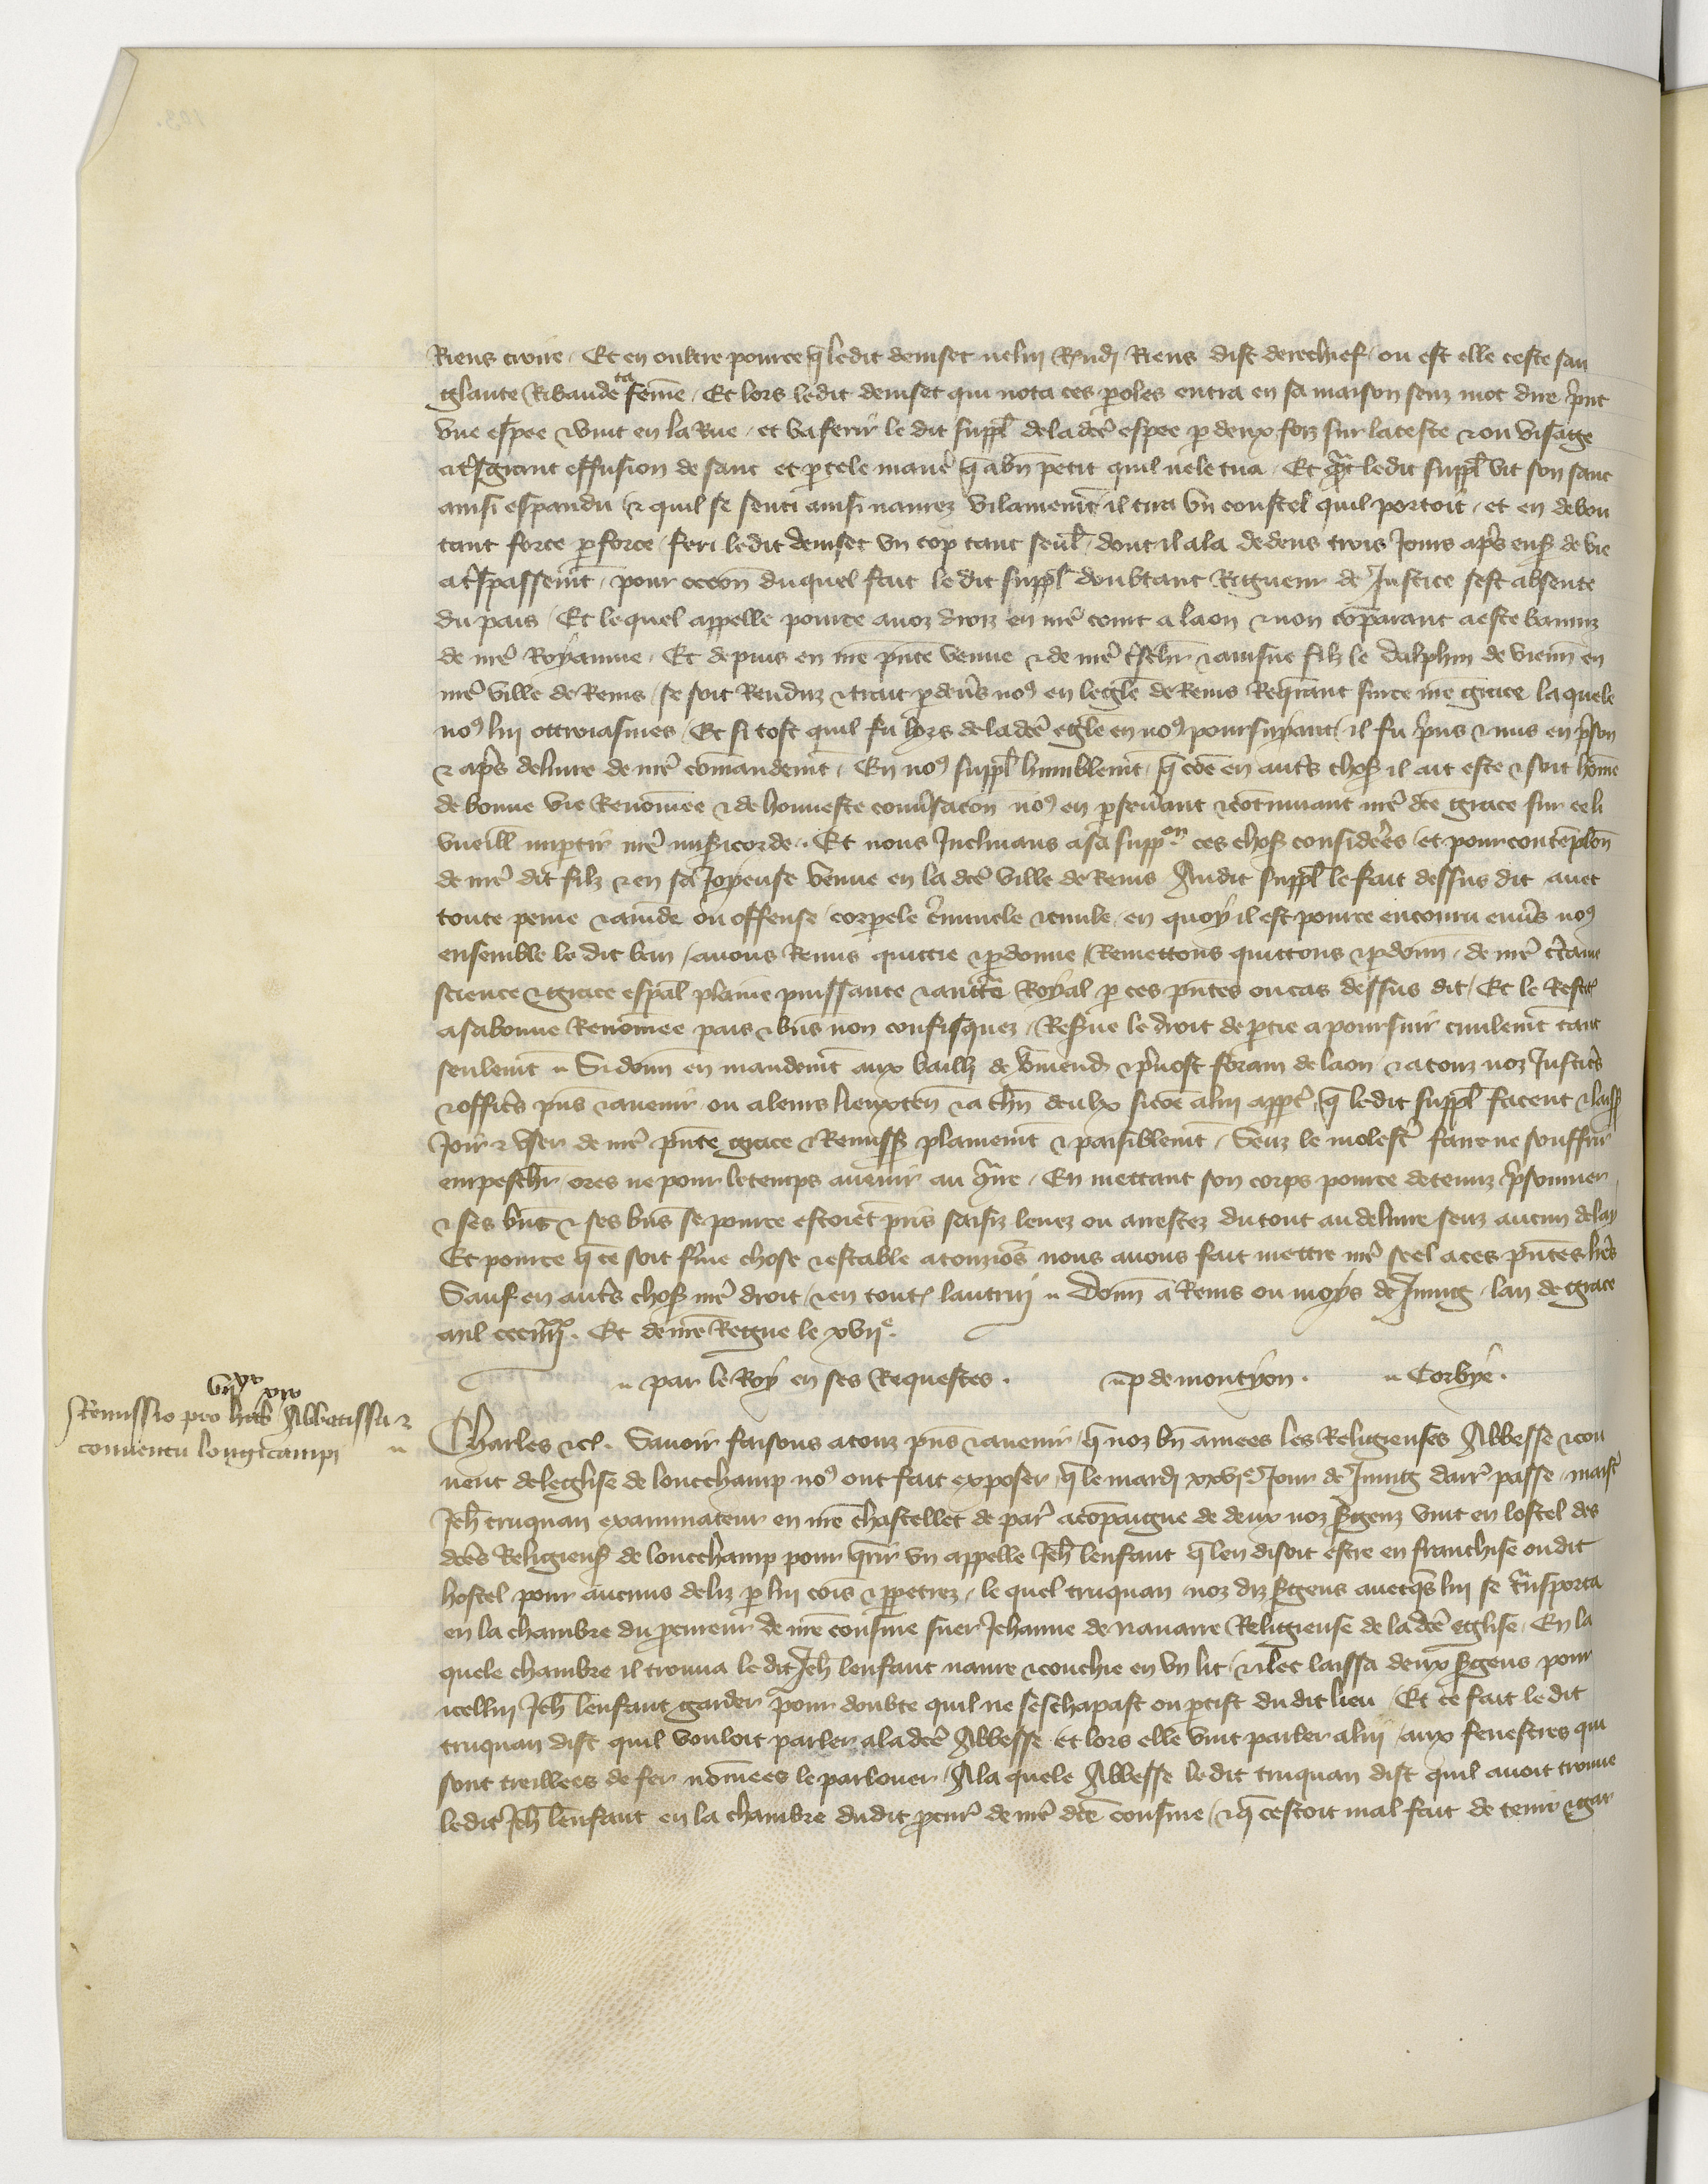 Riens croire. Et en oultre pource q̃ ledit demiset nelui Rñdj Riens dist derechief. ou est elle ceste san
glante Ribaude ta fem̃e. Et lors ledit demiset qui nota ces p̃oles entra en sa maison senz mot dire p̃nt
vne espee & vint en la Rue. et va ferir le dit suppl̃ de la dc̃e espee p̃ deux foiz sur la teste & ou visaige
a t̃sgrant effusion de sanc et p̃ tele maniẽ q̃ a bñ petit quil ne le tua. Et q̃nt ledit suppl̃ vit son sanc
ainsi espandu & quil se senti ainsi naurez vilainem̃t il tira vn coustel quil portoit. et en debou
tant force p̃ force feri ledit demiset vn cop tant seul̃. dont il ala dedens trois Jours ap̃s ens̃ de vie
a t̃spassem̃t. pour occoñ duquel fait le dit suppl̃ doubtant Rigueur de Justice sest absente
du pais. Et lequel appelle pource a noz droiz en nr̃e court a laon & non cõparant a este banniz
de nr̃e Royaume. Et depuis en nr̃e pñte venue & de nr̃e t̃schr̃ & ainsne filz le dalphin de vienñ en
nr̃e ville de Reins. se soit Renduz & trait p̃deũs noꝰ en legl̃e de Reins Req̃rant sur ce nr̃e grace laquele
noꝰ lui ottroiasmes. Et si tost quil fu hors de la dc̃e egl̃e en noꝰ poursuyant. il fu p̃ns & mis en p̃son
& ap̃s deliure de nr̃e com̃andem̃t. En noꝰ suppl̃ humblem̃t. q̃ cõe en aut̃s chos̃ il ait este & soit hom̃e
de bonne vie Renom̃ee & de honneste conũsacoñ noꝰ en p̃seũant & cõtinuant nr̃e dc̃e grace sur celi
vueill̃ imp̃tir nr̃e mis̃icorde. Et nous Inclinans a sa suppon̄ ces chos̃ considẽes et pour contẽplõn
de nr̃e dit filz & en sa Joyeuse venue en la dc̃e ville de Reins Audit suppl̃ le fait dessus dit auec
toute peine & am̃de ou offense corporele c̃minele & ciuile. en quoy il est pource encouru enũs noꝰ
ensemble le dit ban auons Remis quictie & p̃donne Remettons quittons & p̃donñ. de nr̃e c̃taine
science & grace esp̃al plaine puissance & auct̃e Royal p̃ ces pñtes ou cas dessus dit. Et le Restit̃
a sa bonne Renom̃ee pais & bñs non confisquez. Res̃ue le droit de p̃tie a poursuir ciuilem̃t tant
seulem̃t. Si donñ en mandem̃t aux baillz de v̂mend̃ & p̃uost forain de laon & a touz noz Justic̃s
& offic̃s pñs & auenir ou a leurs lieuxteñ & a chñ deulx sicõe a lui appt̃. q̃ ledit suppl̃ facent & laiss̃
Joir & vser de nr̃e pñte grace & Remiss̃ plainem̃t & paisiblem̃t. Senz le molest̃ faire ne souffrir
empeschr̃ ores ne pour le temps auenir au q̃tre. En mettant son corps pource detenuz p̃sonnier
& ses bñs & ses bñs se pource estoiẽt pris saisiz leuez ou arrestez du tout au deliure senz aucun delay
Et pource q̃ ce soit ferme chose & estable a touziõs nous auons fait mettre nr̃e seel a ces p̃ntes lr̃es
Sauf en aut̃s chos̃ nr̃e droit. & en toutes lautrui. Donñ a Reins ou moys de Juing. lan de grace
mil ccciiiixx. Et de nr̃e Regne le xviie.
par le Roy en ses Requestes. P de montyon. Corbye.
Remissio pro Abbatissa &
conuentu longicampi
Charles &c. Sauoir faisons a touz pñs & auenir. q̃ noz bñ amees les Religieuses Abbesse & cou
uent de leglise de loncchamp noꝰ ont fait exposer. q̃ le mardj xxvie Jour de Juing darr̃ passe. maist̃
Jeh̃ truquan examinateur en nr̃e chastellet de par̃ acõpaigne de deux noz s̃genz vint en lostel des
dc̃es Religieus̃ de loncchamp pour q̃rir vn appelle Jeh̃ lenfant q̃ len disoit estre en franchise ou dit
hostel pour aucuns deliz p̃ lui cõis & p̃petrez. le quel truquan noz diz s̃gens auecq̃s lui se t̃nsporta
en la chambre du p̃cureur de nr̃e cousine suer Jehanne de nauarre Religieuse de la dc̃e eglise. En la
quele chambre il trouua le dit Jeh̃ lenfant naure & couchie en vn lit. & ilec laissa deux s̃gens pour
icellui Jeh̃ lenfant garder pour doubte quil ne seschapast ou p̃tist du dit lieu. Et ce fait le dit
truquan dist quil vouloit parler a la dc̃e Abbesse et lors elle vint parler a lui aux fenestres qui
sont treillees de fer nom̃ees le parlouer. A la quele Abbesse le dit truquan dist quil auoit trouue
ledit Jeh̃ lenfant en la chambre dudit p̃cur̃ de nr̃e dc̃e cousine. & q̃ cestoit mal fait de tenir & gar